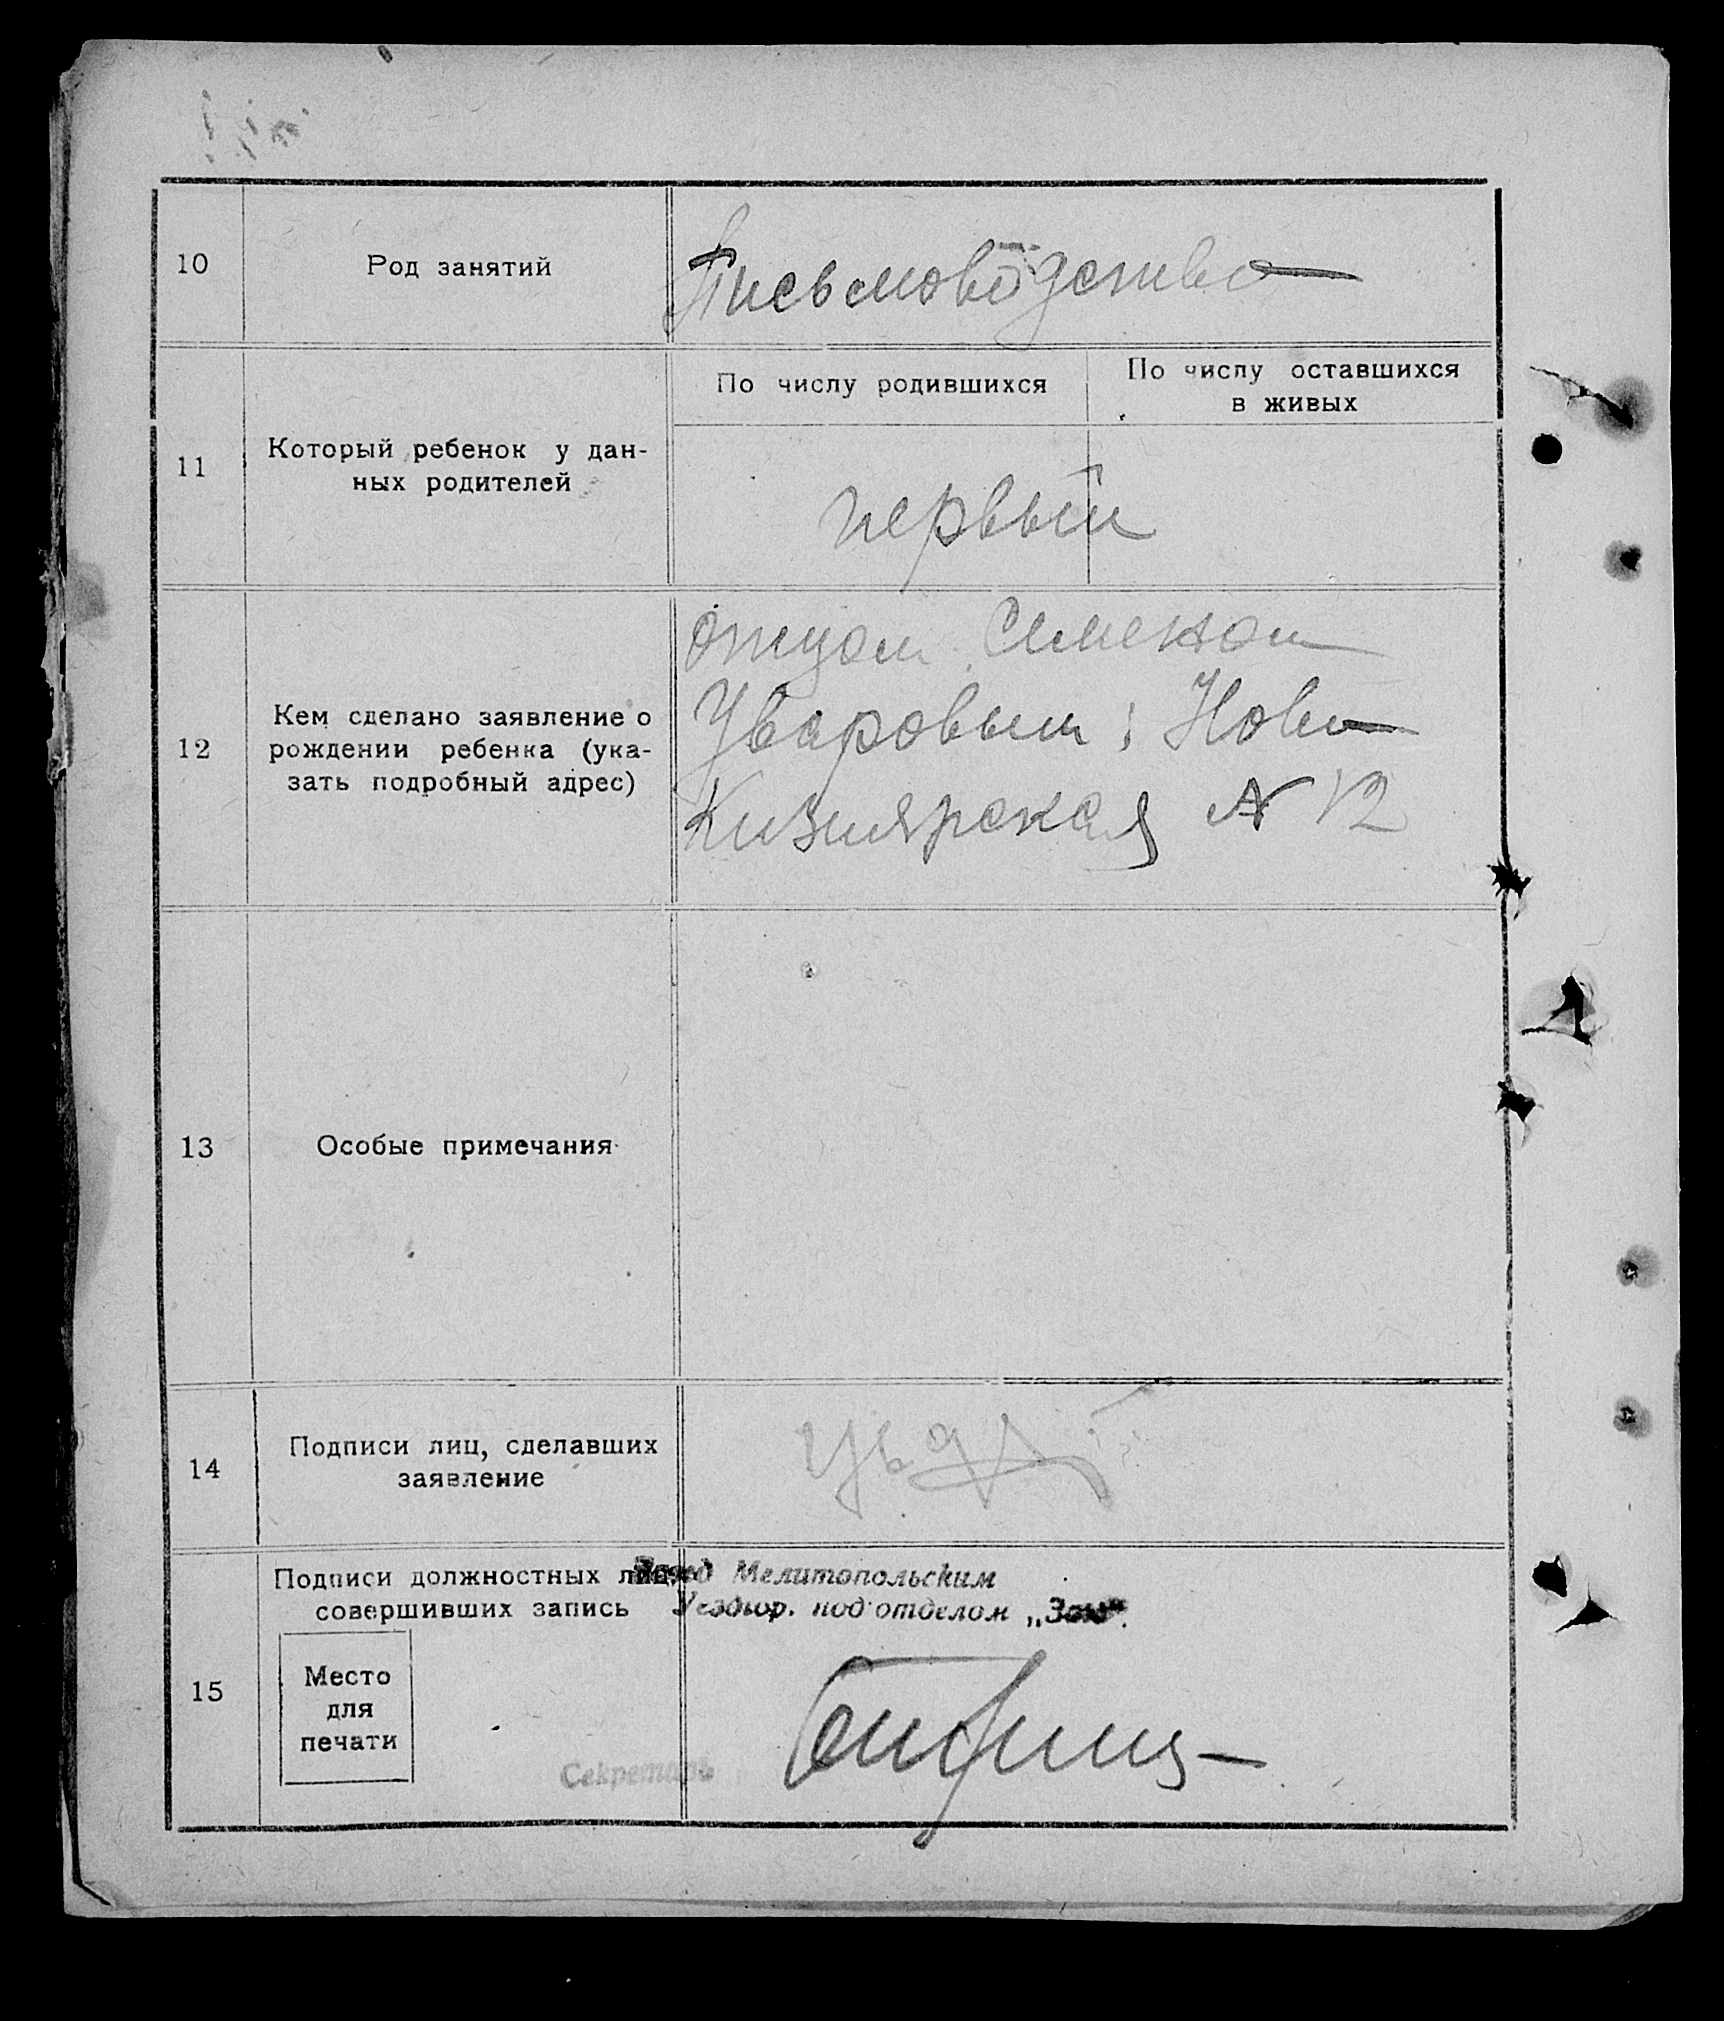 10
Род занятий
Письмоводство
11
Который ребенок у дан-
ных родителей
По числу родившихся
По числу оставшихся
в живых
первый
12
Кем сделано заявление о
рождении ребенка (ука-
зать подробный адрес)
отцом Семеном
Уваровым; Ново
Кизиярская № 12
13
Особые примечания
14
Подписи лиц, сделавших
заявление
15
Подписи должностных лиц,
совершивших запись
Место
для
печати
Завед Мелитопольским
Уездгор. под'отделом „Загс“.
Секретарь